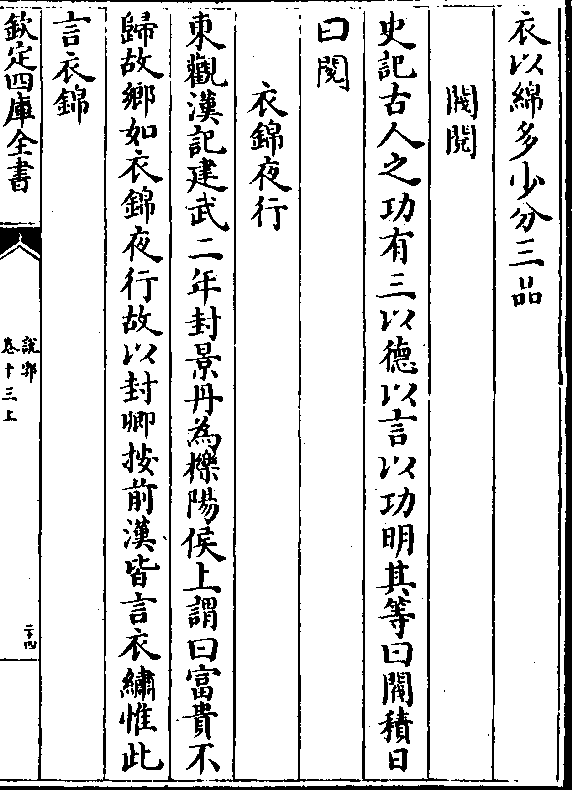 衣以綿多少分三品
閥閱
史記古人之功有三以德以言以功明其等曰閥積日
曰閱
衣錦夜行
東觀漢記建武二年封景丹為櫟陽侯上謂曰富貴不
歸故鄉如衣錦夜行故以封卿按前漢皆言衣繡惟此
言衣錦
欽定四庫全書
說郛
卷十三上
二十四